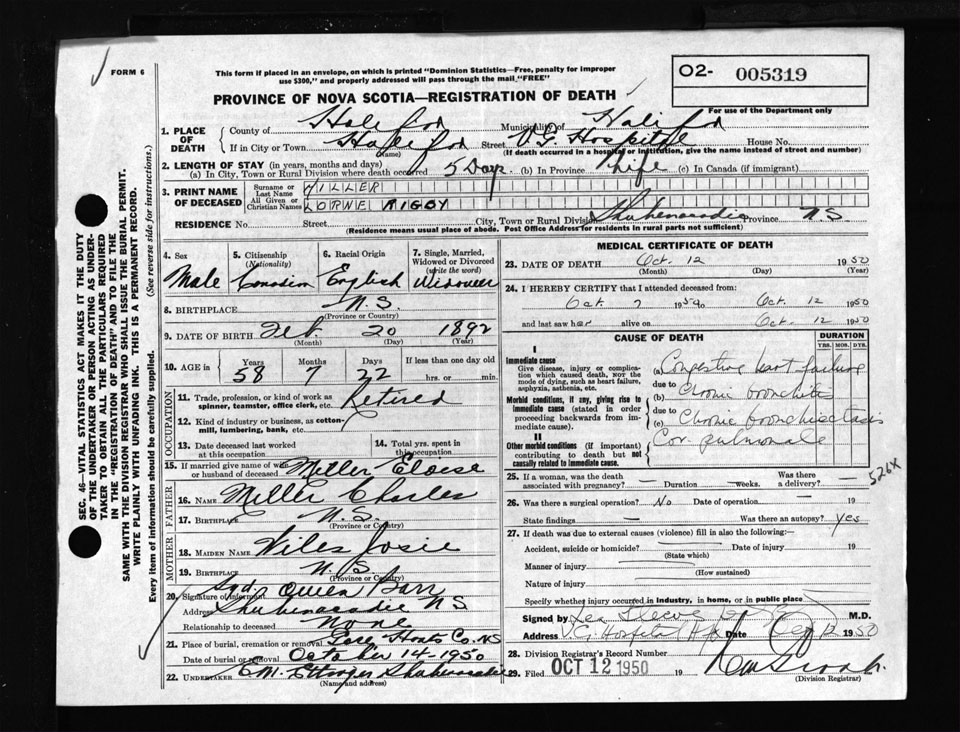 FORM 6
This form if placed in an envelope, on which is printed "Dominion Statistics—Free, penalty for improper
use $300," and properly addressed will pass through the mail "FREE"
O2- 005319
For use of the Department only
PROVINCE OF NOVA SCOTIA—REGISTRATION OF DEATH
SEC. 46—VITAL STATISTICS ACT MAKES IT THE DUTY
OF THE UNDERTAKER OR PERSON ACTING AS UNDER-
TAKER TO OBTAIN ALL THE PARTICULARS REQUIRED
IN THE "REGISTRATION OF DEATH" AND TO FILE THE
SAME WITH THE DIVISION REGISTRAR WHO SHALL ISSUE THE BURIAL PERMIT.
WRITE PLAINLY WITH UNFADING INK. THIS IS A PERMANENT RECORD.
Every item of information should be carefully supplied. (See reverse side for instructions.)
1. PLACE OF DEATH
County of Halifax Municipality of Halifax
If in City or Town Halifax Street V.G. Hospital House No.
(Name) (If death occurred in a hospital or institution, give the name instead of street and number)
2. LENGTH OF STAY (in years, months and days)
(a) In City, Town or Rural Division where death occurred 5 Days. (b) In Province Life (c) In Canada (if immigrant)
3. PRINT NAME OF DECEASED
Surname or Last Name MILLER
All Given or Christian Names LORNE RIGBY
RESIDENCE No. Street City, Town or Rural Division Shubenacadie Province N S
(Residence means usual place of abode. Post Office Address for residents in rural parts not sufficient)
4. Sex Male
5. Citizenship (Nationality) Canadian
6. Racial Origin English
7. Single, Married, Widowed or Divorced (write the word) Widower
8. BIRTHPLACE N.S.
(Province or Country)
9. DATE OF BIRTH Feb. 20 1892
(Month) (Day) (Year)
10. AGE in Years 58 Months 7 Days 22 If less than one day old
hrs. or min.
OCCUPATION
11. Trade, profession, or kind of work as spinner, teamster, office clerk, etc. Retired
12. Kind of industry or business, as cotton-mill, lumbering, bank, etc.
13. Date deceased last worked at this occupation
14. Total yrs. spent in this occupation
15. If married give name of wife or husband of deceased Miller Eloise
FATHER
16. NAME Miller Charles
17. BIRTHPLACE N.S.
(Province or Country)
MOTHER
18. MAIDEN NAME Wiles Josie
19. BIRTHPLACE N.S.
(Province or Country)
20. Signature of informant Sgd. Owen Barr
Address Shubenacadie N S
Relationship to deceased None
21. Place of burial, cremation or removal Hants Co. NS
Date of burial or removal October 14-1950
22. UNDERTAKER E.M. Ettinger Shubenacadie
(Name and address)
MEDICAL CERTIFICATE OF DEATH
23. DATE OF DEATH Oct. 12 1950
(Month) (Day) (Year)
24. I HEREBY CERTIFY that I attended deceased from:
Oct. 7 1950 to Oct. 12 1950
and last saw her alive on Oct. 12 1950
CAUSE OF DEATH
DURATION
YRS. MOS. DYS.
I
Immediate cause
Give disease, injury or complication which caused death, NOT the mode of dying, such as heart failure, asphyxia, asthenia, etc.
(a) Congestive heart failure
due to
Morbid conditions, if any, giving rise to immediate cause (stated in order proceeding backwards from immediate cause).
(b) Chronic bronchitis
due to
(c) Chronic bronchiectasis
II
Other morbid conditions (if important) contributing to death but not causally related to immediate cause.
Cor. pulmonale
526X
25. If a woman, was the death associated with pregnancy? — Duration — Weeks. Was there a delivery? —
26. Was there a surgical operation? No Date of operation — 19
State findings — Was there an autopsy? Yes
27. If death was due to external causes (violence) fill in also the following:-
Accident, suicide or homicide? Date of injury 19
(State which)
Manner of injury
(How sustained)
Nature of injury
Specify whether injury occurred in industry, in home, or in public place
Signed by M.D.
Address V.G. Hospital Hfx Date Oct 12 1950
28. Division Registrar's Record Number
29. Filed OCT 12 1950 19
(Division Registrar)